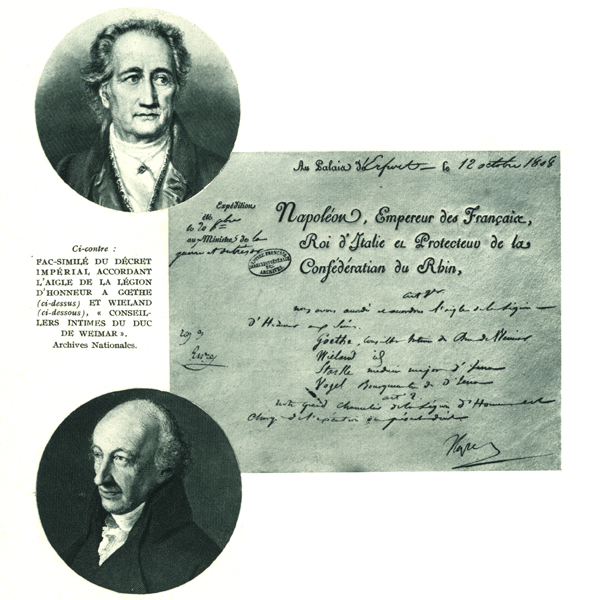 Ci-contre :
FAC-SIMILÉ DU DÉCRET
IMPÉRIAL ACCORDANT
L'AIGLE DE LA LÉGION
D'HONNEUR A GŒTHE
(ci-dessus) ET WIELAND
(ci-dessous), « CONSEIL-
LERS INTIMES DU DUC
DE WEIMAR ».
Archives Nationales.
Au Palais d'Erfurt le 12 octobre 1808
Expédition
été
le 20
au Ministre de la
guerre
Napoléon, Empereur des Françaix,
Roi d'Italie et Protecteur de la
Confédération du Rhin,
ARCHIVES
art 1er
nous avons accordé et accordons l'aigle de la Légion
d'Honneur aux Srs.
Goethe, conseiller intime du Duc de Weimar
Wieland id
Starke medecin major d'Jena
Vogel Bourguemestre de d'Jena
art 2
notre grand chancelier de la Légion d'Honneur est
Chargé de l'exécution du présent décret
Nap